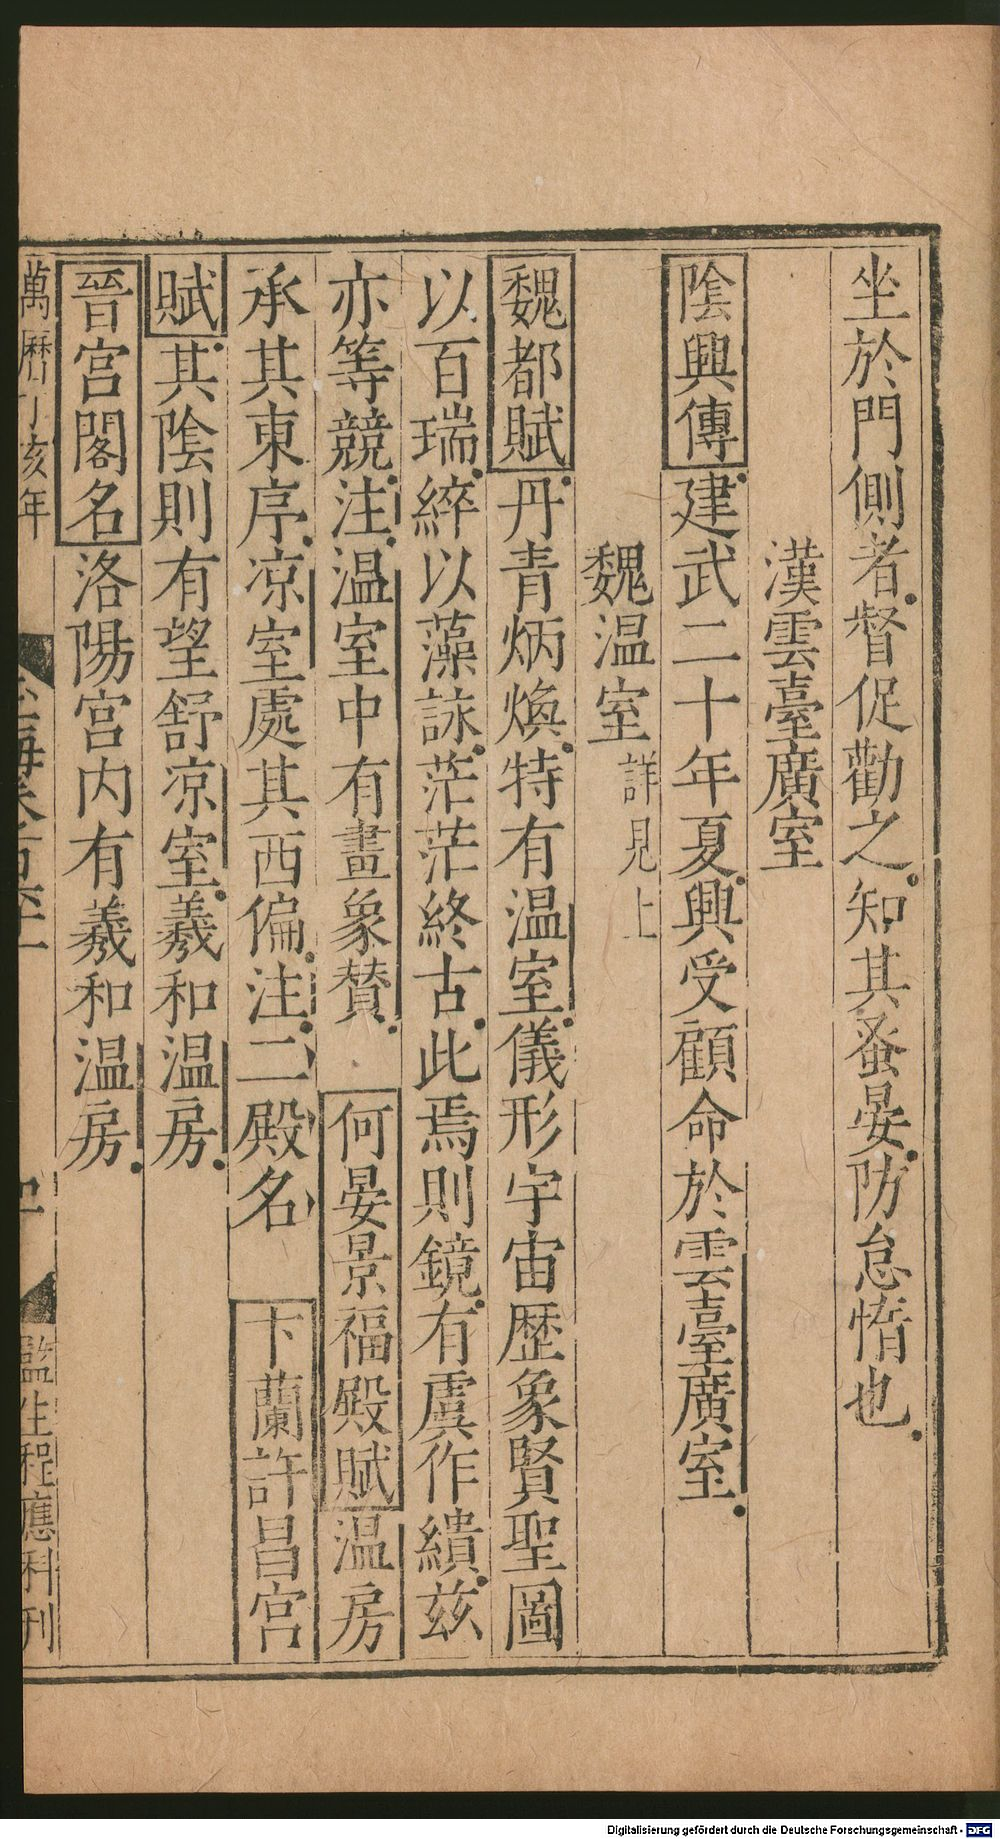 坐於門側者督促勸之知其蚤晏防怠惰也
漢雲臺廣室
陰興傳建武二十年夏興受顧命於雲臺廣室
魏温室詳見上
魏都賦丹青炳煥特有温室儀形宇宙歷象賢聖圖
以百瑞綷以藻詠茫茫終古此焉則鏡有虞作繢兹
亦等競注温室中有畫象贊 何晏景福殿賦温房
承其東序凉室處其西偏注二殿名 卞蘭許昌宫
賦其陰則有望舒凉室羲和温房
晉宫閣名洛陽宫内有羲和温房
萬曆丁亥年 監生程應科刊
Digitalisierung gefördert durch die Deutsche Forschungsgemeinschaft - DFG